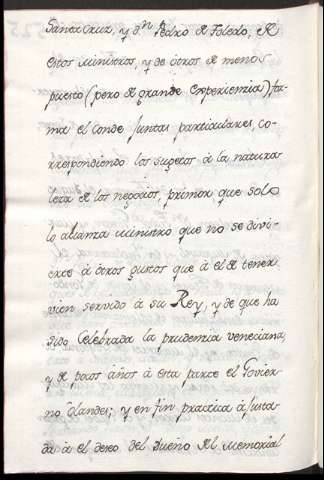 Santa Cruz, y d.ⁿ Pedro de Toledo; de
estos Ministros, y de otros de menos
puesto (pero de grande experienzia) for
ma el Conde Juntas particulares, co-
rrespondiendo los sugetos à la natura
leza de los negozios, primor que solo
lo alcanza ministro que no se divi-
erte à otros gustos que à el de tener
vien servido à su Rey, y de que ha
sido Celebrada la prudenzia veneciana,
y de pocos años à esta parte el Govier-
no olandes; y en fin practica ajusta-
da à el deseo del Dueño del Memorial